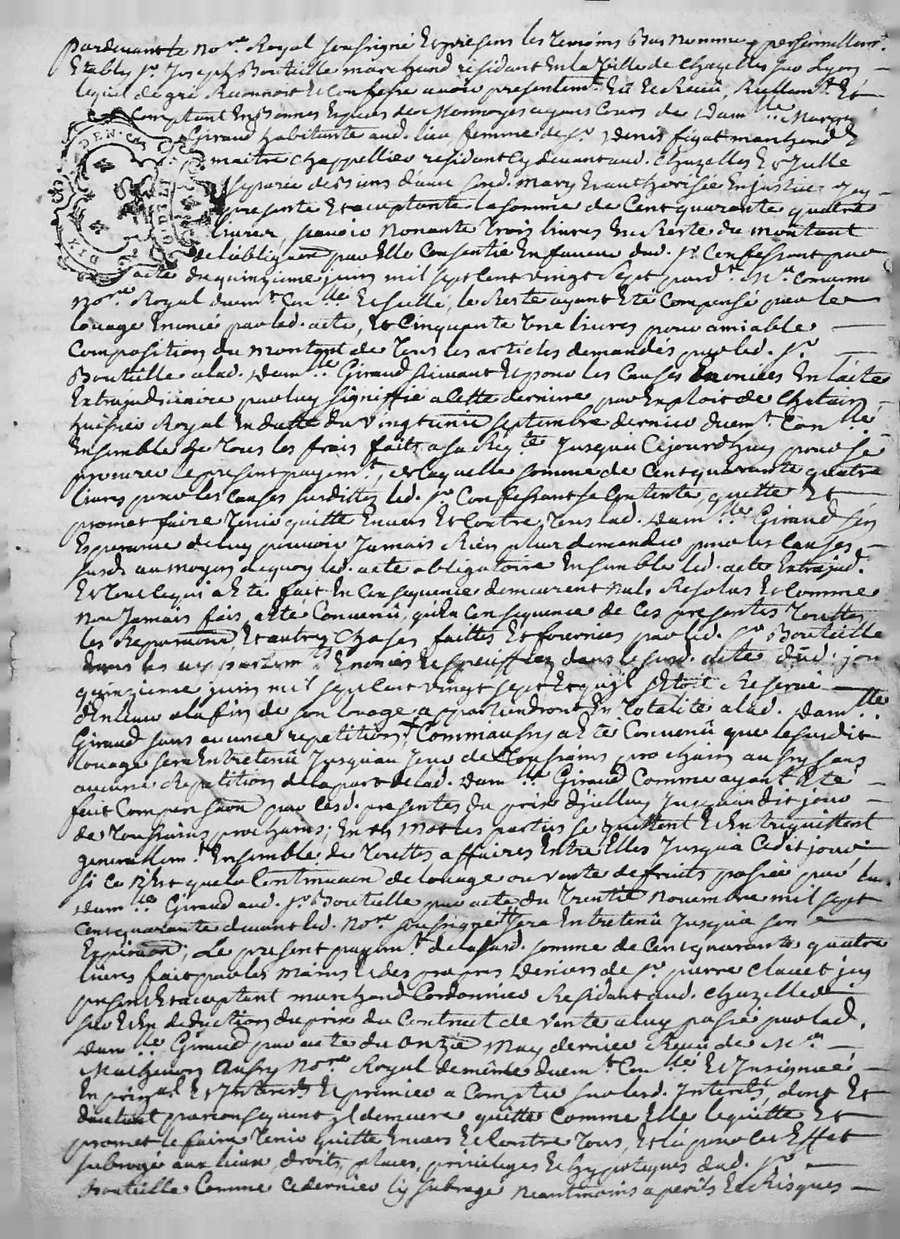 Pardevant le No.re Royal soussigné Et presens les temoins Bas nommes personnellem.t
Etablis S.r Joseph Bouteille marchand residant En la Ville de Chazelles sur Lyon
lequel de gré Reconnoit Et Confesse avoir presentem.t Eu Et Receu, Reellem.t Et
Comptant En Bonnes Especes de Monnoyes ayant Cours de Dam.lle Marg.
Giraud habitante aud. lieu femme de S.r Denis figat marchand Et
maitre Chappellier residant Cy devant aud. Chazelles Et Icelle
Separée de Biens d'avec sond. mary Et authorisée En justice Icy
presente Et acceptante la somme de Cent quarante quatre
livres, scavoir nonante trois livres En Reste du montant
de l'obligaon par Elle Consentie En faveur dud. S.r Confessant par
acte du quinzieme juin mil sept Cent vingt Sept pard.t M.e
No.re Royal duem.t Con.llé Et scellé, le Reste ayant Eté Compensé par le
louage Enoncé par led. acte, Et Cinquante Une livres pour amiable
Composition du montant de tous les articles demandés par led. S.r
Bouteille a lad. Dam.lle Giraud suivant Et pour les Causes Enoncées En l'acte
Extrajudiciaire par luy signiffié a Cette derniere par Exploit de Chatain
huissier Royal En datte du vingt unie septembre dernier duem.t Con.llé
Ensemble de tous les frais faits a sa Req.te Jusques a Cejourd'huy pour se
procurer le present payem.t, de laquelle somme de Cent quarante quatre
livres pour les Causes susdittes led. S.r Confessant se Contente, quitte Et
promet faire tenir quitte Envers Et Contre tous lad. Dam.lle Giraud sans
Esperance de luy pouvoir Jamais Rien plus demander pour les Causes
susd. au moyen de quoy led. acte obligatoire Ensemble led. acte Extrajud.
Et tout Ce qui a Eté fait En Consequence demeurent nuls Resolus Et Comme
non Jamais faits, a Eté Convenû, qu'En Consequence de Ces presentes toutes
les Reparaons, Et autres Choses faittes Et fournies par led. S.r Bouteille
dans les appartem.ts Enoncés Et speciffiés dans lesusd. acte dud. jour
quinzieme juin mil sept Cent vingt sept Et qu'il s'Etoit Reservé
d'Enlever a la fin de son louage appartiendront En Totalité a lad. Dam.lle
Giraud sans aucune repetition, Comme aussy a Eté Convenû que lesusdit
louage sera Entretenû Jusqu'au Jour de Toussaints prochain aussy sans
aucune Repetition de la part de lad. Dam.lle Giraud Comme ayant Eté
fait Compensaon par Cesd. presentes du prix d'Icelluy Jusqu'audit jour
de Toussaints prochains; En Un Mot les parties se quittent Et Entrequittent
generallem.t Ensemble de toutes affaires Entre Elles Jusqu'a Cedit jour
si Ce n'Est que la Continuaon de louage ou vente de fruits passée par lad.
Dam.lle Giraud aud. S.r Bouteille par acte du trentie Novembre mil sept
Cent quarante devant led. No.re soussigné sera Entretenû Jusqu'a son
Expiraon, Le present payem.t de lasusd. somme de Cent quarante quatre
livres fait par les mains Et des propres deniers de S.r pierre Clavel icy
present Et acceptant marchand Cordonnier Residant aud. Chazelles
sur Et En deduction du prix du Contract de vente a luy passée par lad.
Dam.lle Giraud par acte du Onzie May dernier Receu de M.e
Mathevon aussy No.re Royal de même duem.t Con.llé Et Insignué
En prin.al Et Interets Et premier a Compter sur lesd. Interets, dont Et
du tout par consequant Il demeure quitte Comme Elle le quitte Et
promet le faire tenir quitte Envers Et Contre tous, Et là pour Cet Effet
subrogé aux lieux, droits, places, privileges Et hypoteques dud. S.r
Bouteille Comme Ce dernier l'y subroge neantmoins a perils Et Risques